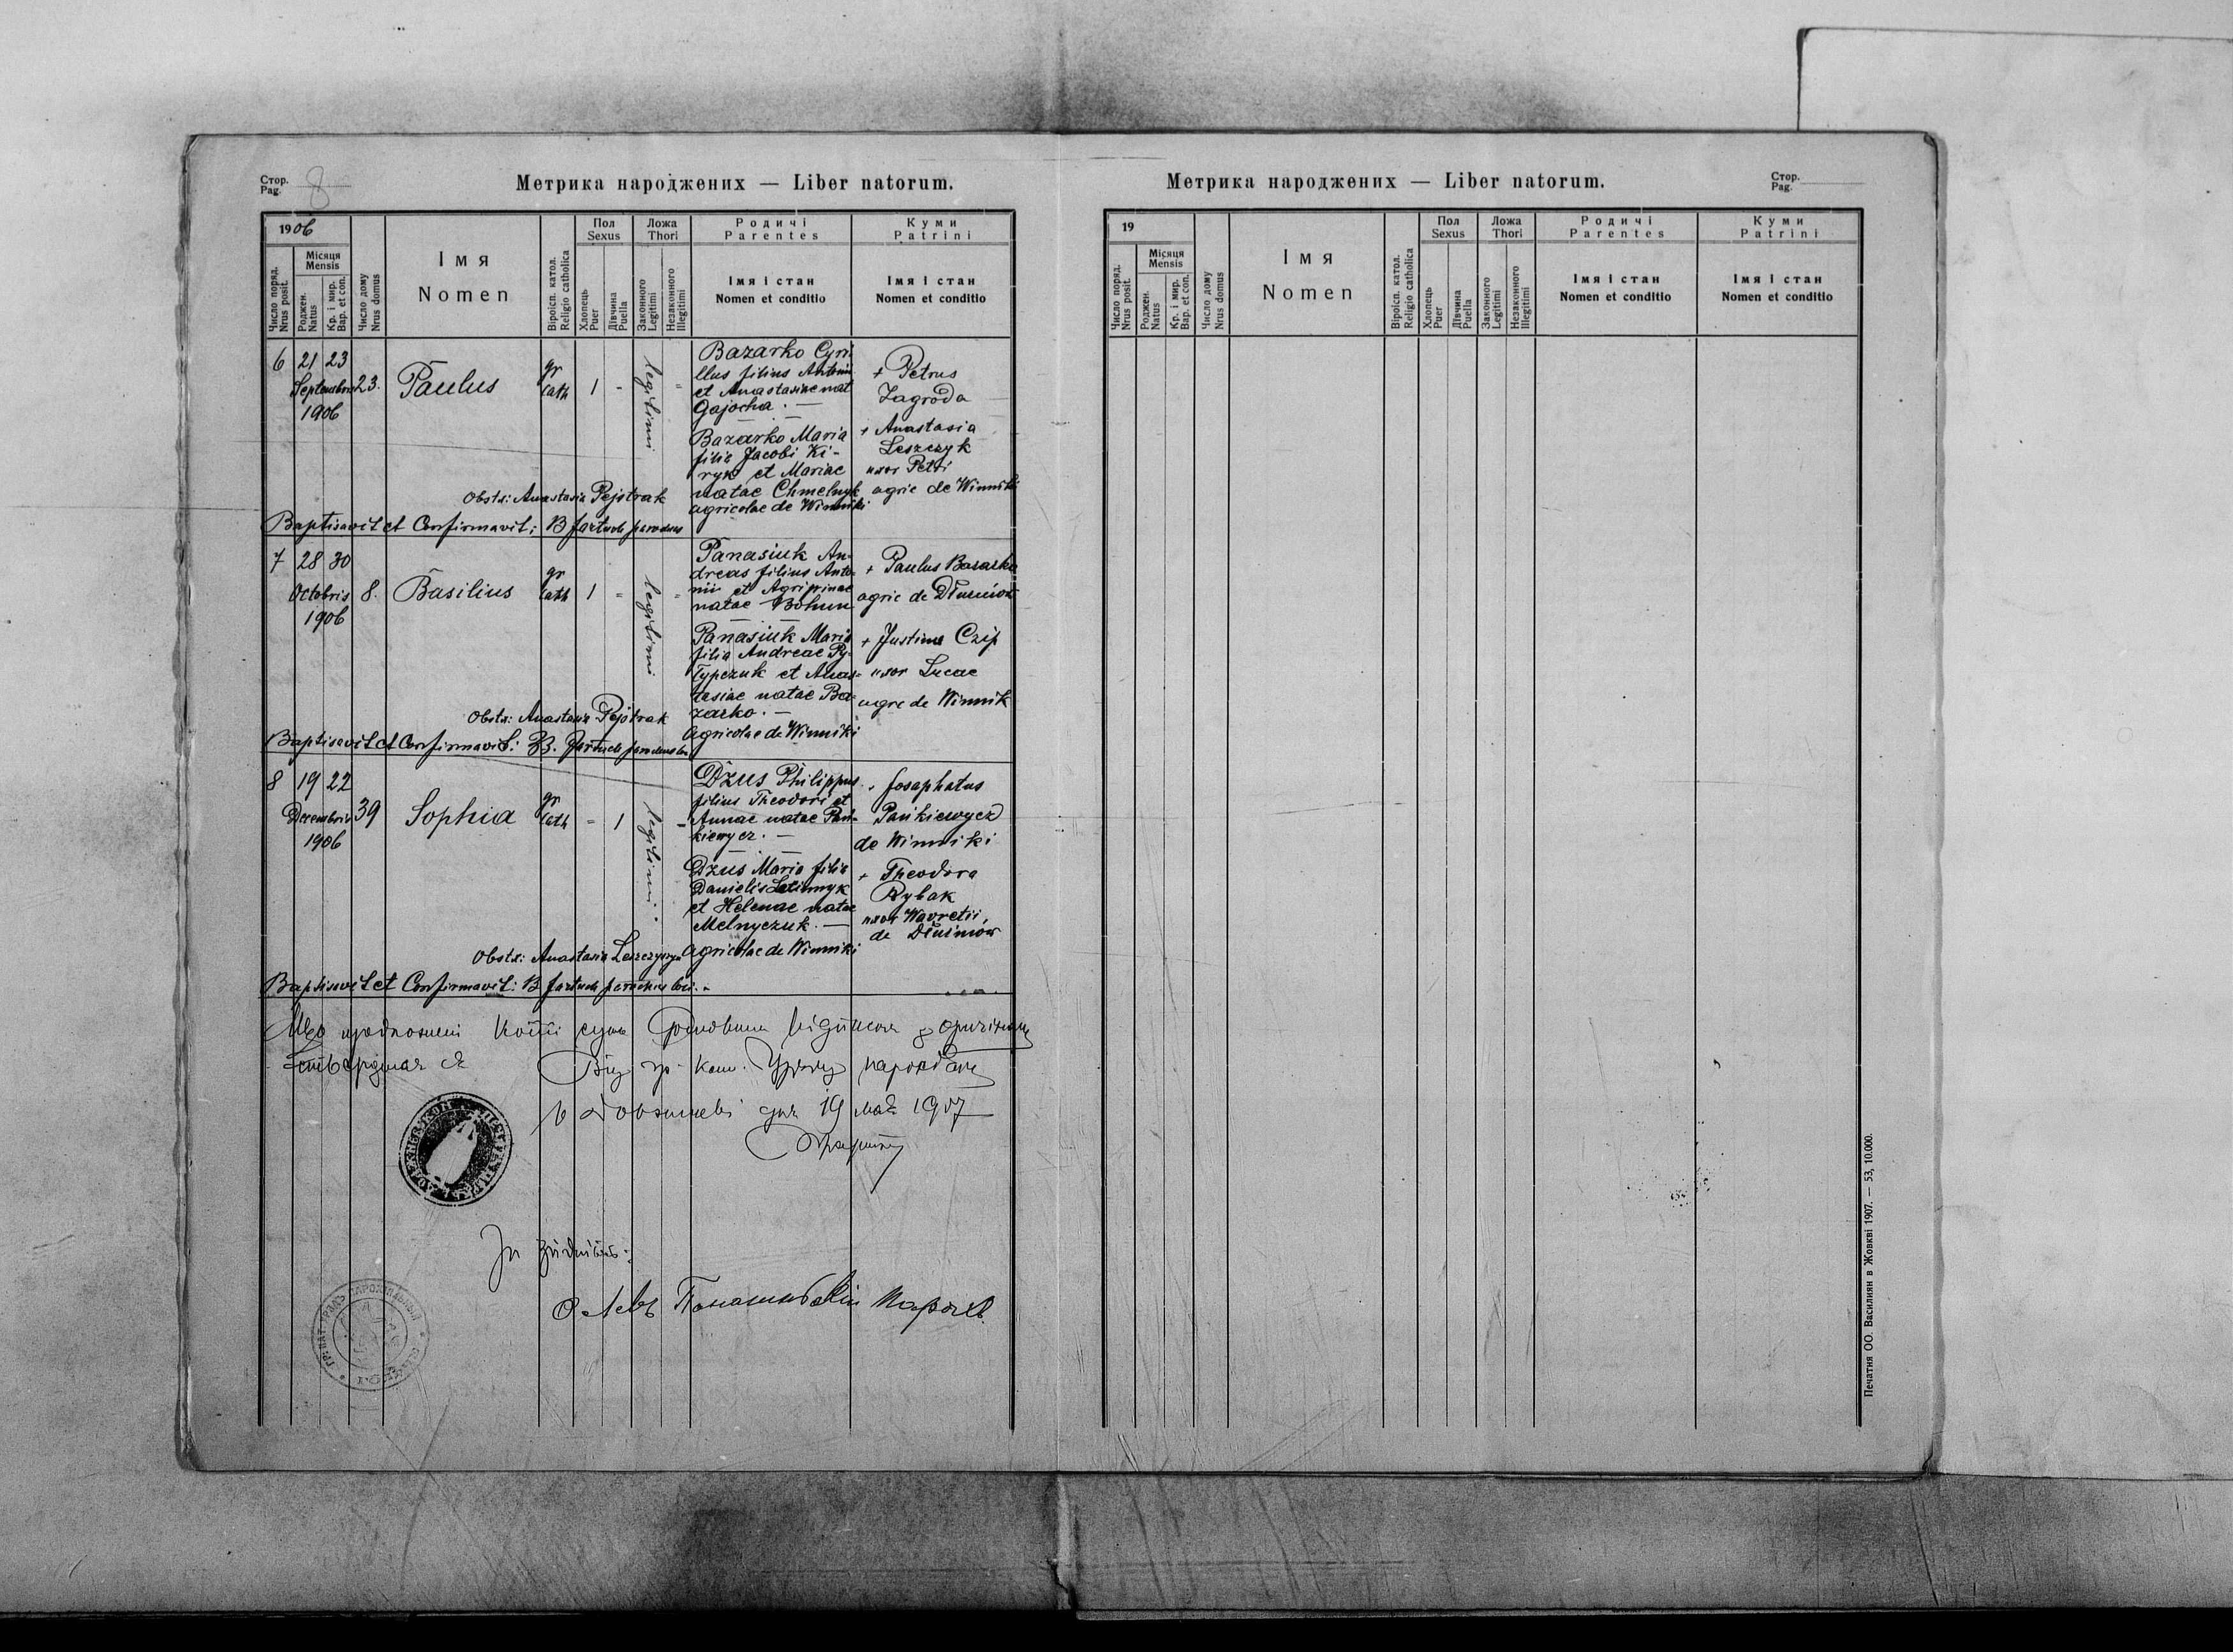 Стор.
Pag. 8
Метрика народжених — Liber natorum.
1906
Число поряд.
Nrus posit.
Місяця
Mensis
Роджен.
Natus
Кр. і мир.
Bap. et con.
Число дому
Nrus domus
Імя
Nomen
Віроісп. катол.
Religio catholica
Пол
Sexus
Хлопець
Puer
Дівчина
Puella
Ложа
Thori
Законного
Legitimi
Незаконного
Illegitimi
Родичі
Parentes
Імя і стан
Nomen et conditio
Куми
Patrini
Імя і стан
Nomen et conditio
6 21 23
Septembris 23.
1906
Paulus
gr
cath 1 -
legitimi
Bazarko Cyri-
llus filius Antonii
et Anastasiae nat
Gajocha. —
Bazarko Maria
filia Jacobi Ki-
ryk et Mariae
natae Chmelnyk
agricolae de Winniki
+ Petrus
Zagroda
+ Anastasia
Leszczyk
uxor Petri
agric de Winniki
Obstx: Anastasia Pejstrak
Baptisavit et Confirmavit: B
7 28 30
Octobris 8.
1906
Basilius
gr
cath 1 =
legitimi
Panasiuk An-
dreas filius Anto-
nii et Agripinae
natae Bohun
Panasiuk Maria
filia Andreae Py-
lypczuk et Anas-
tasiae natae Ba-
zarko. —
Agricolae de Winniki
+ Paulus Bazarko
agric de Dłużniow
+ Justina Czip
uxor Lucae
agre de Winnik
Obstx: Anastasia Pejstrak
Baptisavit et Confirmavit: B.
8 19 22
Decembris 39
1906
Sophia
gr
cath = 1
legitimi
Dzus Philippus
filius Theodori et
Annae natae Pań-
kiewycz. —
Dzus Maria filia
Danielis
et Helenae natae
Melnyczuk. —
Agricolae de Winniki
+ Josaphatus
Pańkiewycz
de Winniki
+ Theodora
Rybak
uxor
de Dłużniow
Obstx: Anastasia
Baptisavit et Confirmavit: B parochus loci. -
Що
ся Від гр. кат. Уряду
в Довжневі дня 19 мая 1907
О Левъ
Метрика народжених — Liber natorum.
Стор.
Pag.
19
Число поряд.
Nrus posit.
Місяця
Mensis
Роджен.
Natus
Кр. і мир.
Bap. et con.
Число дому
Nrus domus
Імя
Nomen
Віроісп. катол.
Religio catholica
Пол
Sexus
Хлопець
Puer
Дівчина
Puella
Ложа
Thori
Законного
Legitimi
Незаконного
Illegitimi
Родичі
Parentes
Імя і стан
Nomen et conditio
Куми
Patrini
Імя і стан
Nomen et conditio
Печатня ОО. Василиян в Жовкві 1907. — 53, 10.000.